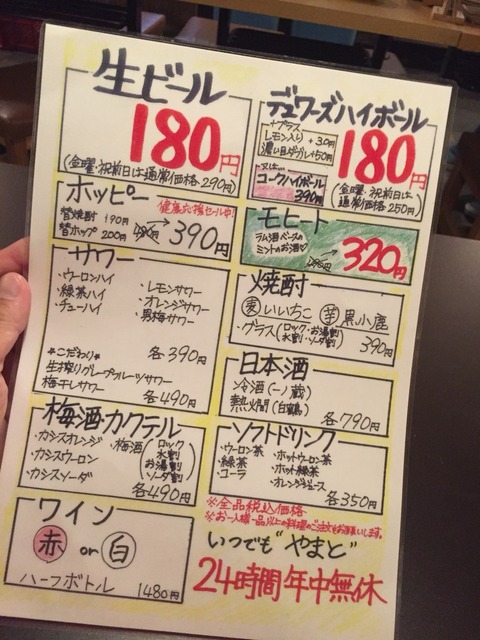 生ビール
180円
(金曜・祝前日は通常価格290円)
デュワーズハイボール
+プラス
レモン入り +30円
濃い目ダブル+50円
又は…
コークハイボール
390円
180円
(金曜・祝前日は
通常価格250円)
ホッピー
健康応援セール中!
替焼酎 190円
替ホップ 200円
→ 390円
モヒート
ラム酒ベースの
ミントのお酒♡
→ 320円
サワー
・ウーロンハイ
・緑茶ハイ
・チューハイ
・レモンサワー
・オレンジサワー
・男梅サワー
各390円
*こだわり*
生搾りグレープフルーツサワー
梅干しサワー
各490円
焼酎
麦 いいちこ 芋 黒小鹿
・グラス(ロック・お湯割
水割・ソーダ割)
390円
日本酒
冷酒(一ノ蔵)
熱燗(白鶴)
各790円
梅酒・カクテル
・カシスオレンジ
・カシスウーロン
・カシスソーダ
・梅酒(ロック
水割
お湯割
・ソーダ割)
各490円
ソフトドリンク
・ウーロン茶
・緑茶
・コーラ
・ホットウーロン茶
・ホット緑茶
・オレンジジュース
各350円
ワイン
赤 or 白
ハーフボトル
1480円
※全品税込価格
※お一人様一品以上の料理のご注文もお願いします。
いつでも"やまと"
24時間年中無休